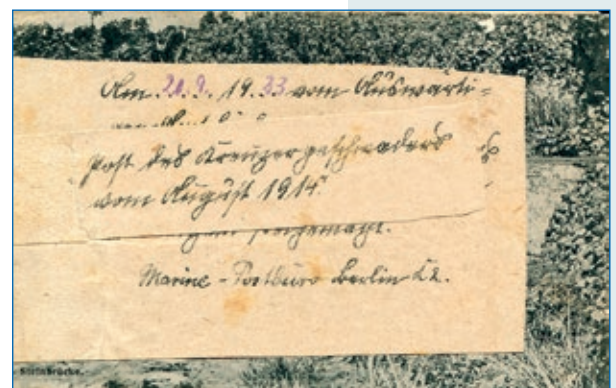 Am 20.9. 19.33 vom Auswärti=
Post des Kreuzergeschwaders
vom August 1914.
Marine-Postbüro Berlin C2.
Steinbrüche.